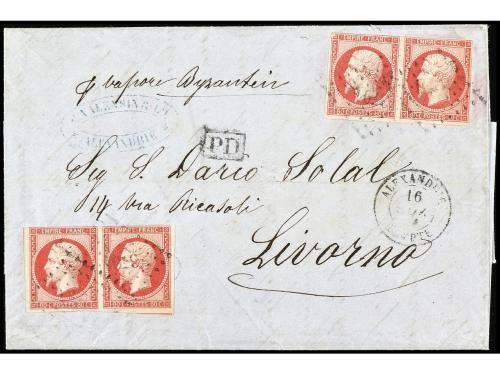 EMPIRE FRANC. EMPIRE FRANC.
80 C. POSTES 80 C. 80 C. POSTES 80 C.
p vapore Byzantin
ALEXANDRIE
PD
Sig S. Dario Solal
14 Via Ricasoli
Livorno
ALEXANDRIE
16
EMPIRE FRANC. EMPIRE FRANC.
80 C. POSTES 80 C. 80 C. POSTES 80 C.